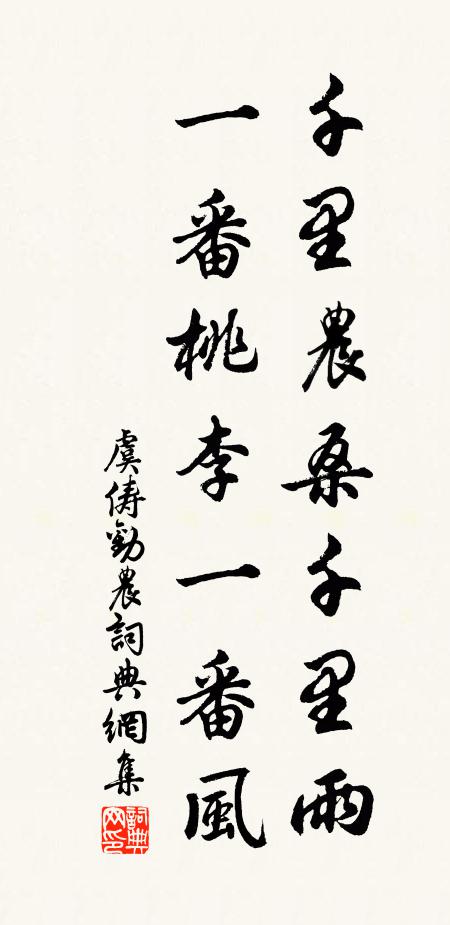 千里農桑千里雨
一番桃李一番風
虞儔勸農詞典網集
詞典網印